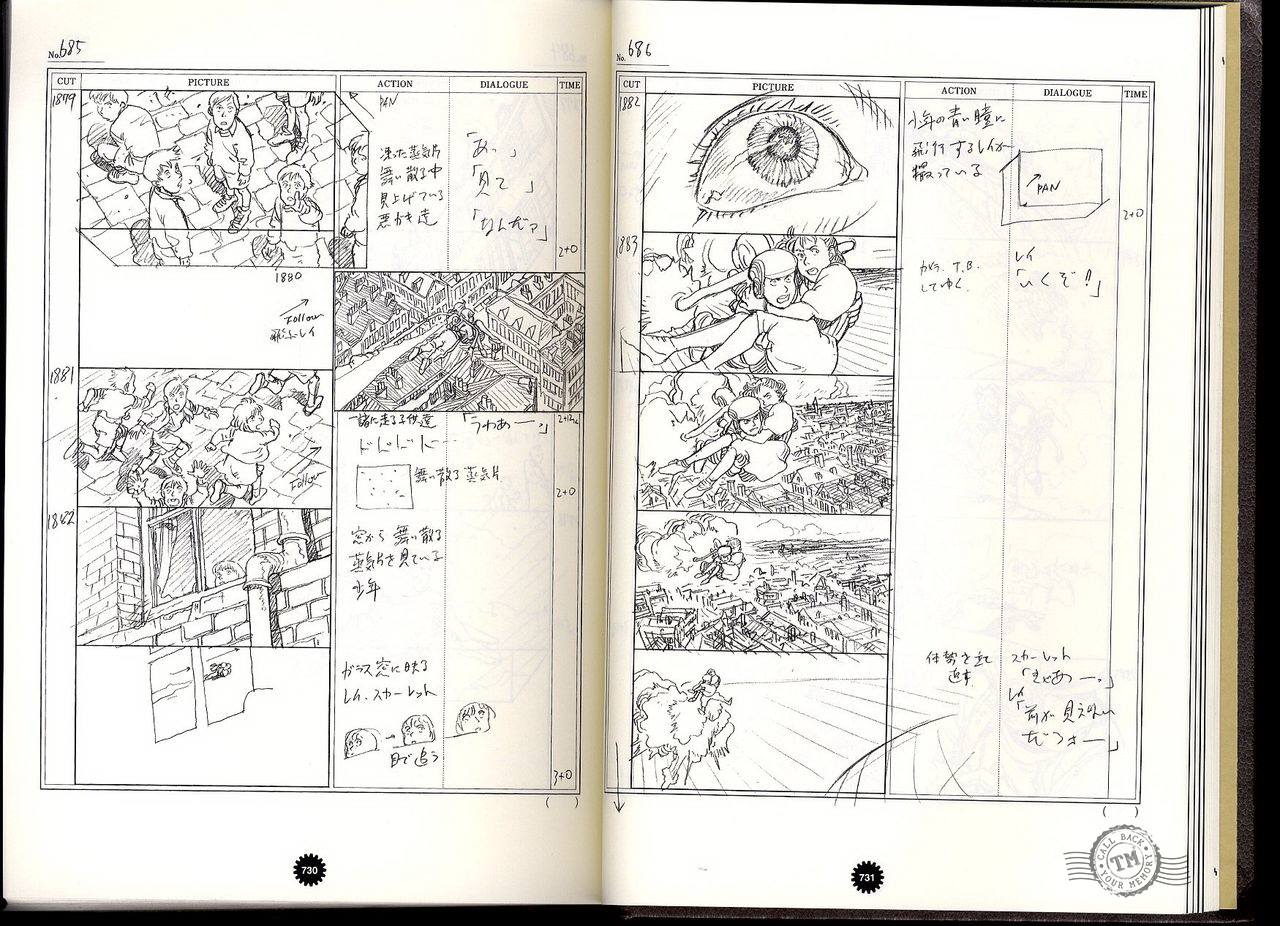 No.685
CUT
PICTURE
ACTION
DIALOGUE
TIME
1879
PAN
凍った蒸気片
舞い散る中
見上げている
悪がき達
「あっ」
「見て」
「なんだァ」
2+0
1880
Follow
飛ぶレイ
1881
一緒に走る子供達
「うわあー。」
ドドドドー
舞い散る蒸気片
Follow
2+0
1882
窓から舞い散る
蒸気片を見ている
少年
ガラス窓に映る
レイ、スカーレット
目で追う
3+0
( )
730
No.686
CUT
PICTURE
ACTION
DIALOGUE
TIME
1882
少年の青い瞳に
飛行するレイが
映っている
PAN
2+0
1883
カメラ、T.B.
してゆく。
レイ
「いくぞ!!」
体勢を立て
直す
スカーレット
「きゃあー。」
レイ
「前が見えない
だろうさー」
( )
731
CALL BACK
TM
YOUR MEMORY